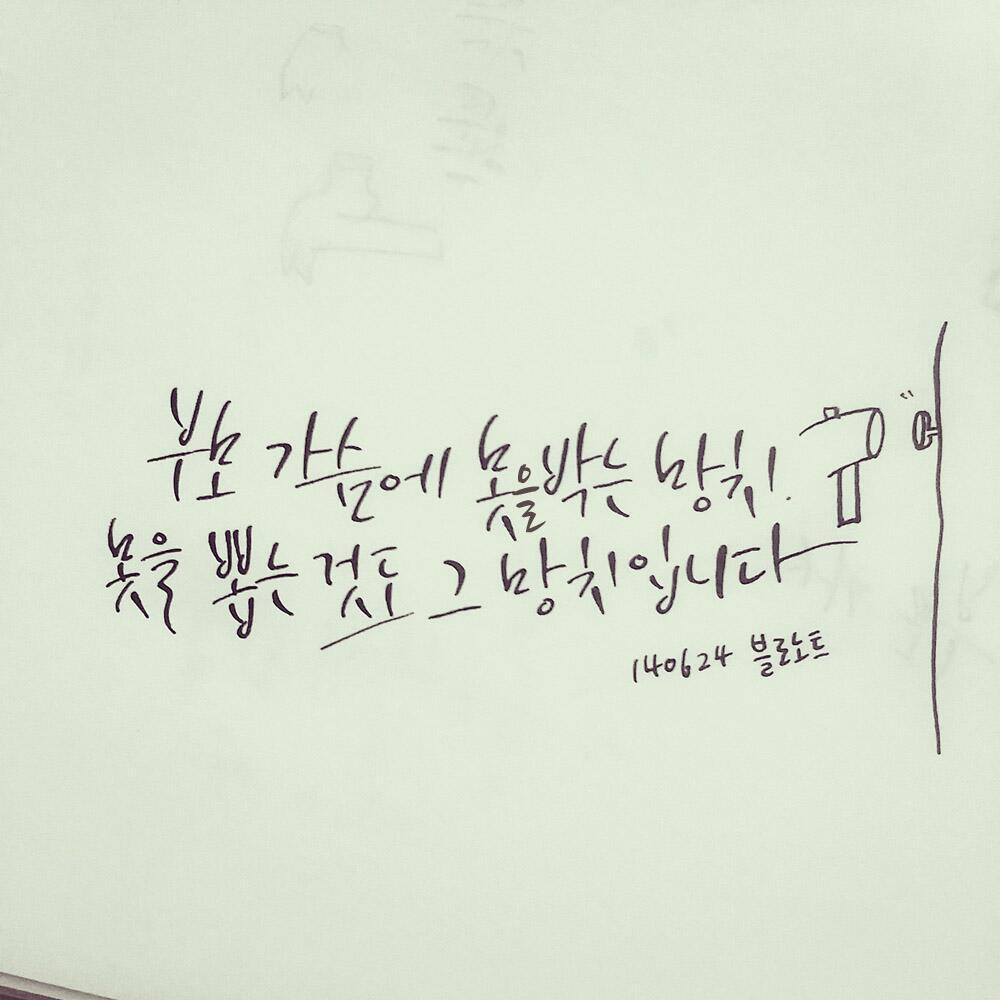 부모 가슴에 못을박는 망치!
못을 뽑는 것도 그 망치입니다
140624 블로노트